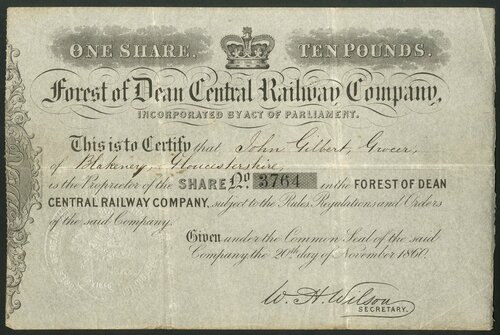 ONE SHARE. TEN POUNDS.
Forest of Dean Central Railway Company,
INCORPORATED BY ACT OF PARLIAMENT.
This is to Certify that John Gilbert, Grocer,
of Blakeney, Gloucestershire,
is the Proprietor of the SHARE No. 3764 in the FOREST OF DEAN
CENTRAL RAILWAY COMPANY, subject to the Rules, Regulations and Orders
of the said Company.
Given under the Common Seal of the said
Company, the 20th day of November 1860.
W. H. Wilson
SECRETARY.